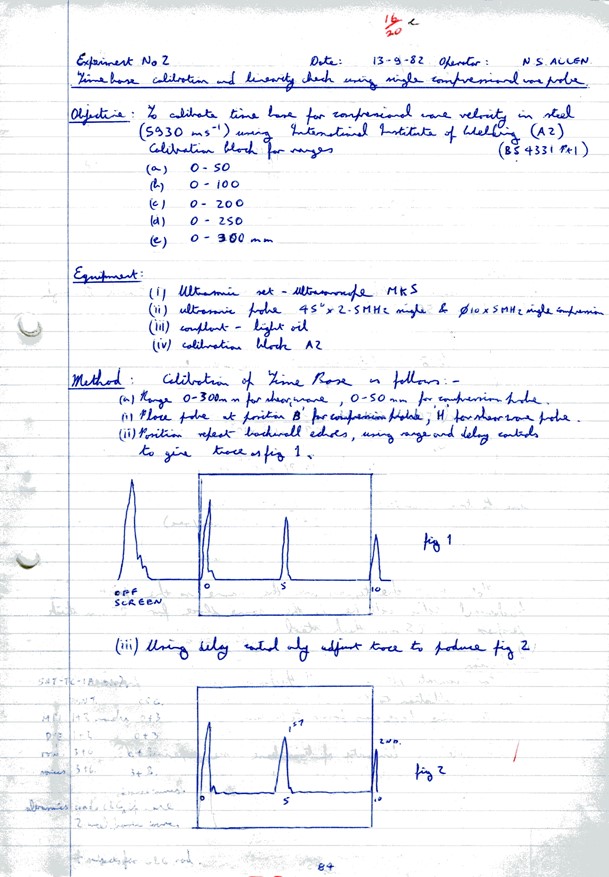 16
20
Experiment No 2 Date: 13-9-82 Operator: N S. ALLEN
Time base calibration and linearity check using single compressional wave probe
Objective: To calibrate time base for compressional wave velocity in steel
(5930 ms⁻¹) using International Institute of Welding (A2)
Calibration block for ranges (BS 4331 Pt1)
(a) 0 - 50
(b) 0 - 100
(c) 0 - 200
(d) 0 - 250
(e) 0 - 300 mm
Equipment:
(i) Ultrasonic set - Ultrasonoscope MKS
(ii) ultrasonic probe 45° x 2.5MHz single & Ø10 x 5MHz single compression
(iii) couplant - light oil
(iv) calibration block A2
Method: Calibration of Time Base as follows:-
(a) Range 0-300mm for shear wave, 0-50mm for compression probe.
(i) Place probe at position 'B' for compression probe, 'H' for shear wave probe.
(ii) Position repeat backwall echoes, using range and delay controls
to give trace as fig 1.
fig 1
OFF
SCREEN
0 5 10
(iii) Using delay control only adjust trace to produce fig 2
1ST
2ND.
fig 2
0 5 10
84